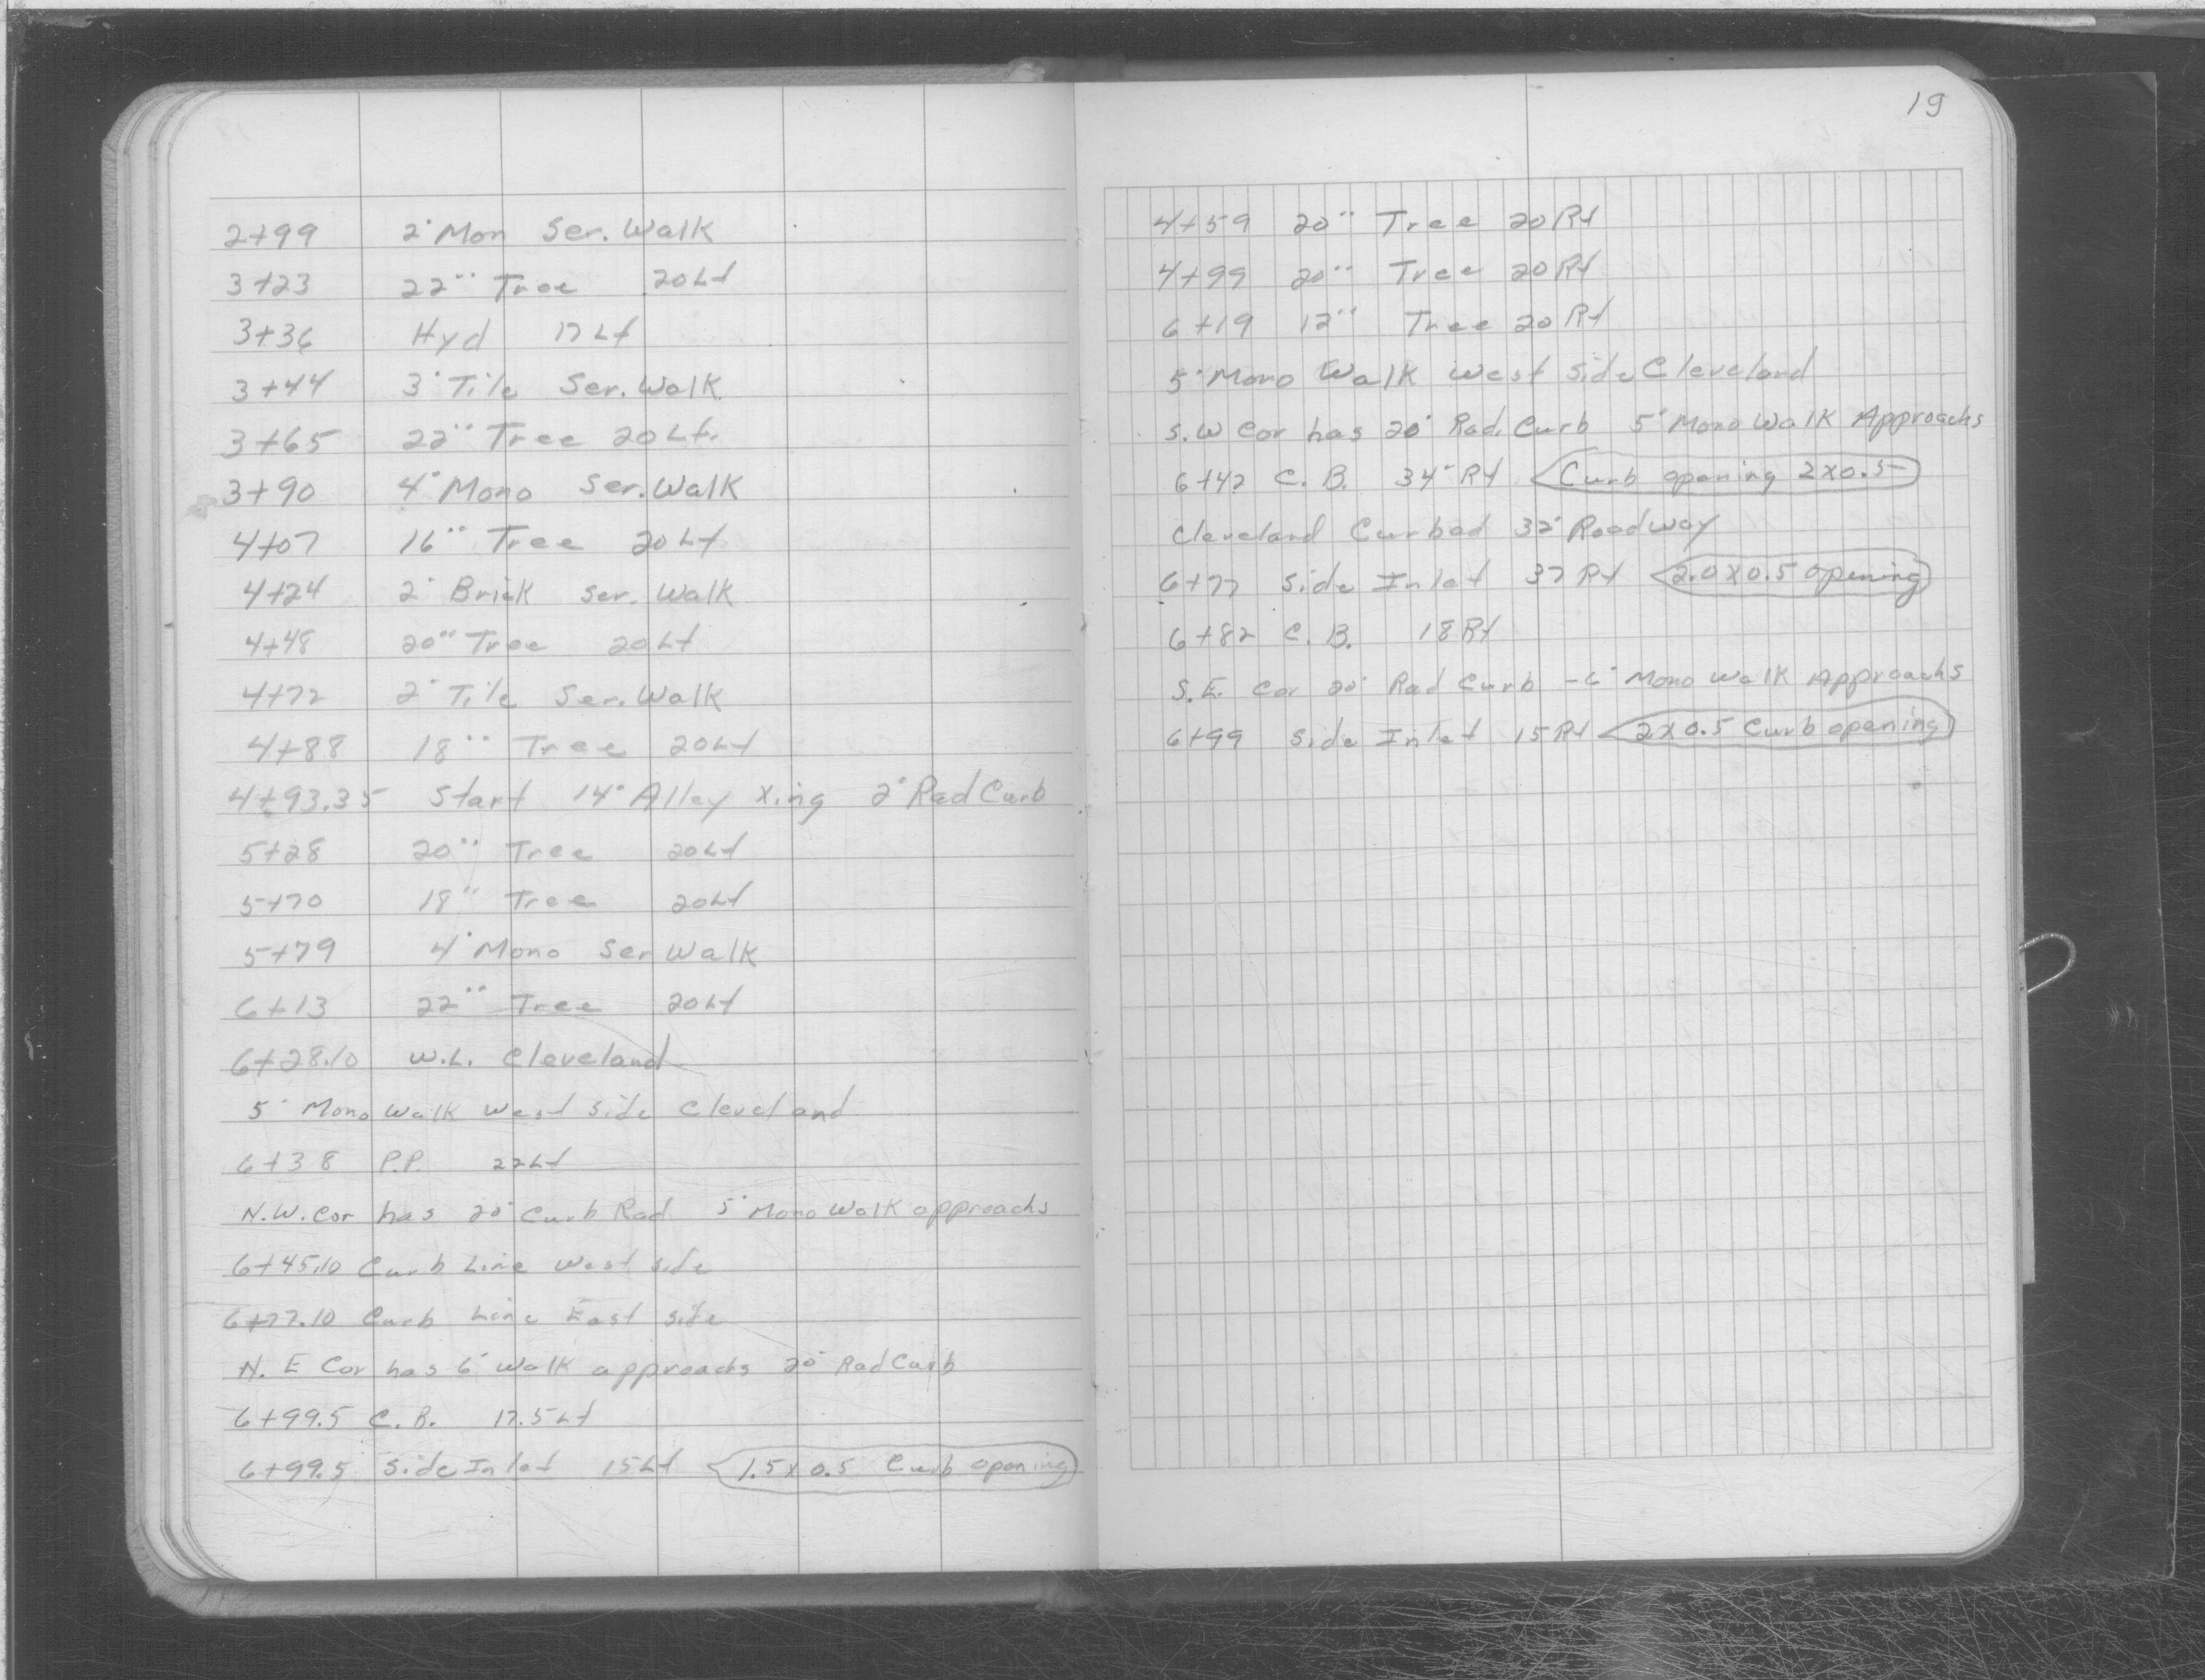 2+99 2' Mon Ser. Walk
3+23 22" Tree 20Lt
3+36 Hyd 17Lt
3+44 3' Tile Ser. Walk
3+65 22" Tree 20Lt.
3+90 4' Mono Ser. Walk
4+07 16" Tree 20Lt
4+24 2' Brick Ser. Walk
4+48 20" Tree 20Lt
4+72 2' Tile Ser. Walk
4+88 18" Tree 20Lt
4+93.35 Start 14' Alley Xing 2' Rad Curb
5+28 20" Tree 20Lt
5+70 18" Tree 20Lt
5+79 4' Mono Ser Walk
6+13 22" Tree 20Lt
6+28.10 W.L. Cleveland
5' Mono Walk West Side Cleveland
6+38 P.P. 22Lt
N.W. Cor has 20' Curb Rad 5' Mono Walk approachs
6+45.10 Curb Line West Side
6+77.10 Curb Line East Side
N.E Cor has 6' Walk approachs 20' Rad Curb
6+99.5 C.B. 17.5Lt
6+99.5 Side Inlet 15Lt 1.5x0.5 Curb opening
19
4+59 20" Tree 20Rt
4+99 20" Tree 20Rt
6+19 12" Tree 20Rt
5' Mono Walk West Side Cleveland
S.W Cor has 20' Rad. Curb 5' Mono Walk Approachs
6+42 C.B. 34' Rt Curb opening 2x0.5
Cleveland Curbed 32' Roadway
6+77 Side Inlet 37 Rt 2.0x0.5 opening
6+82 C.B. 18Rt
S.E. Cor 20' Rad Curb - 6' Mono Walk Approachs
6+99 Side Inlet 15Rt 2x0.5 Curb opening